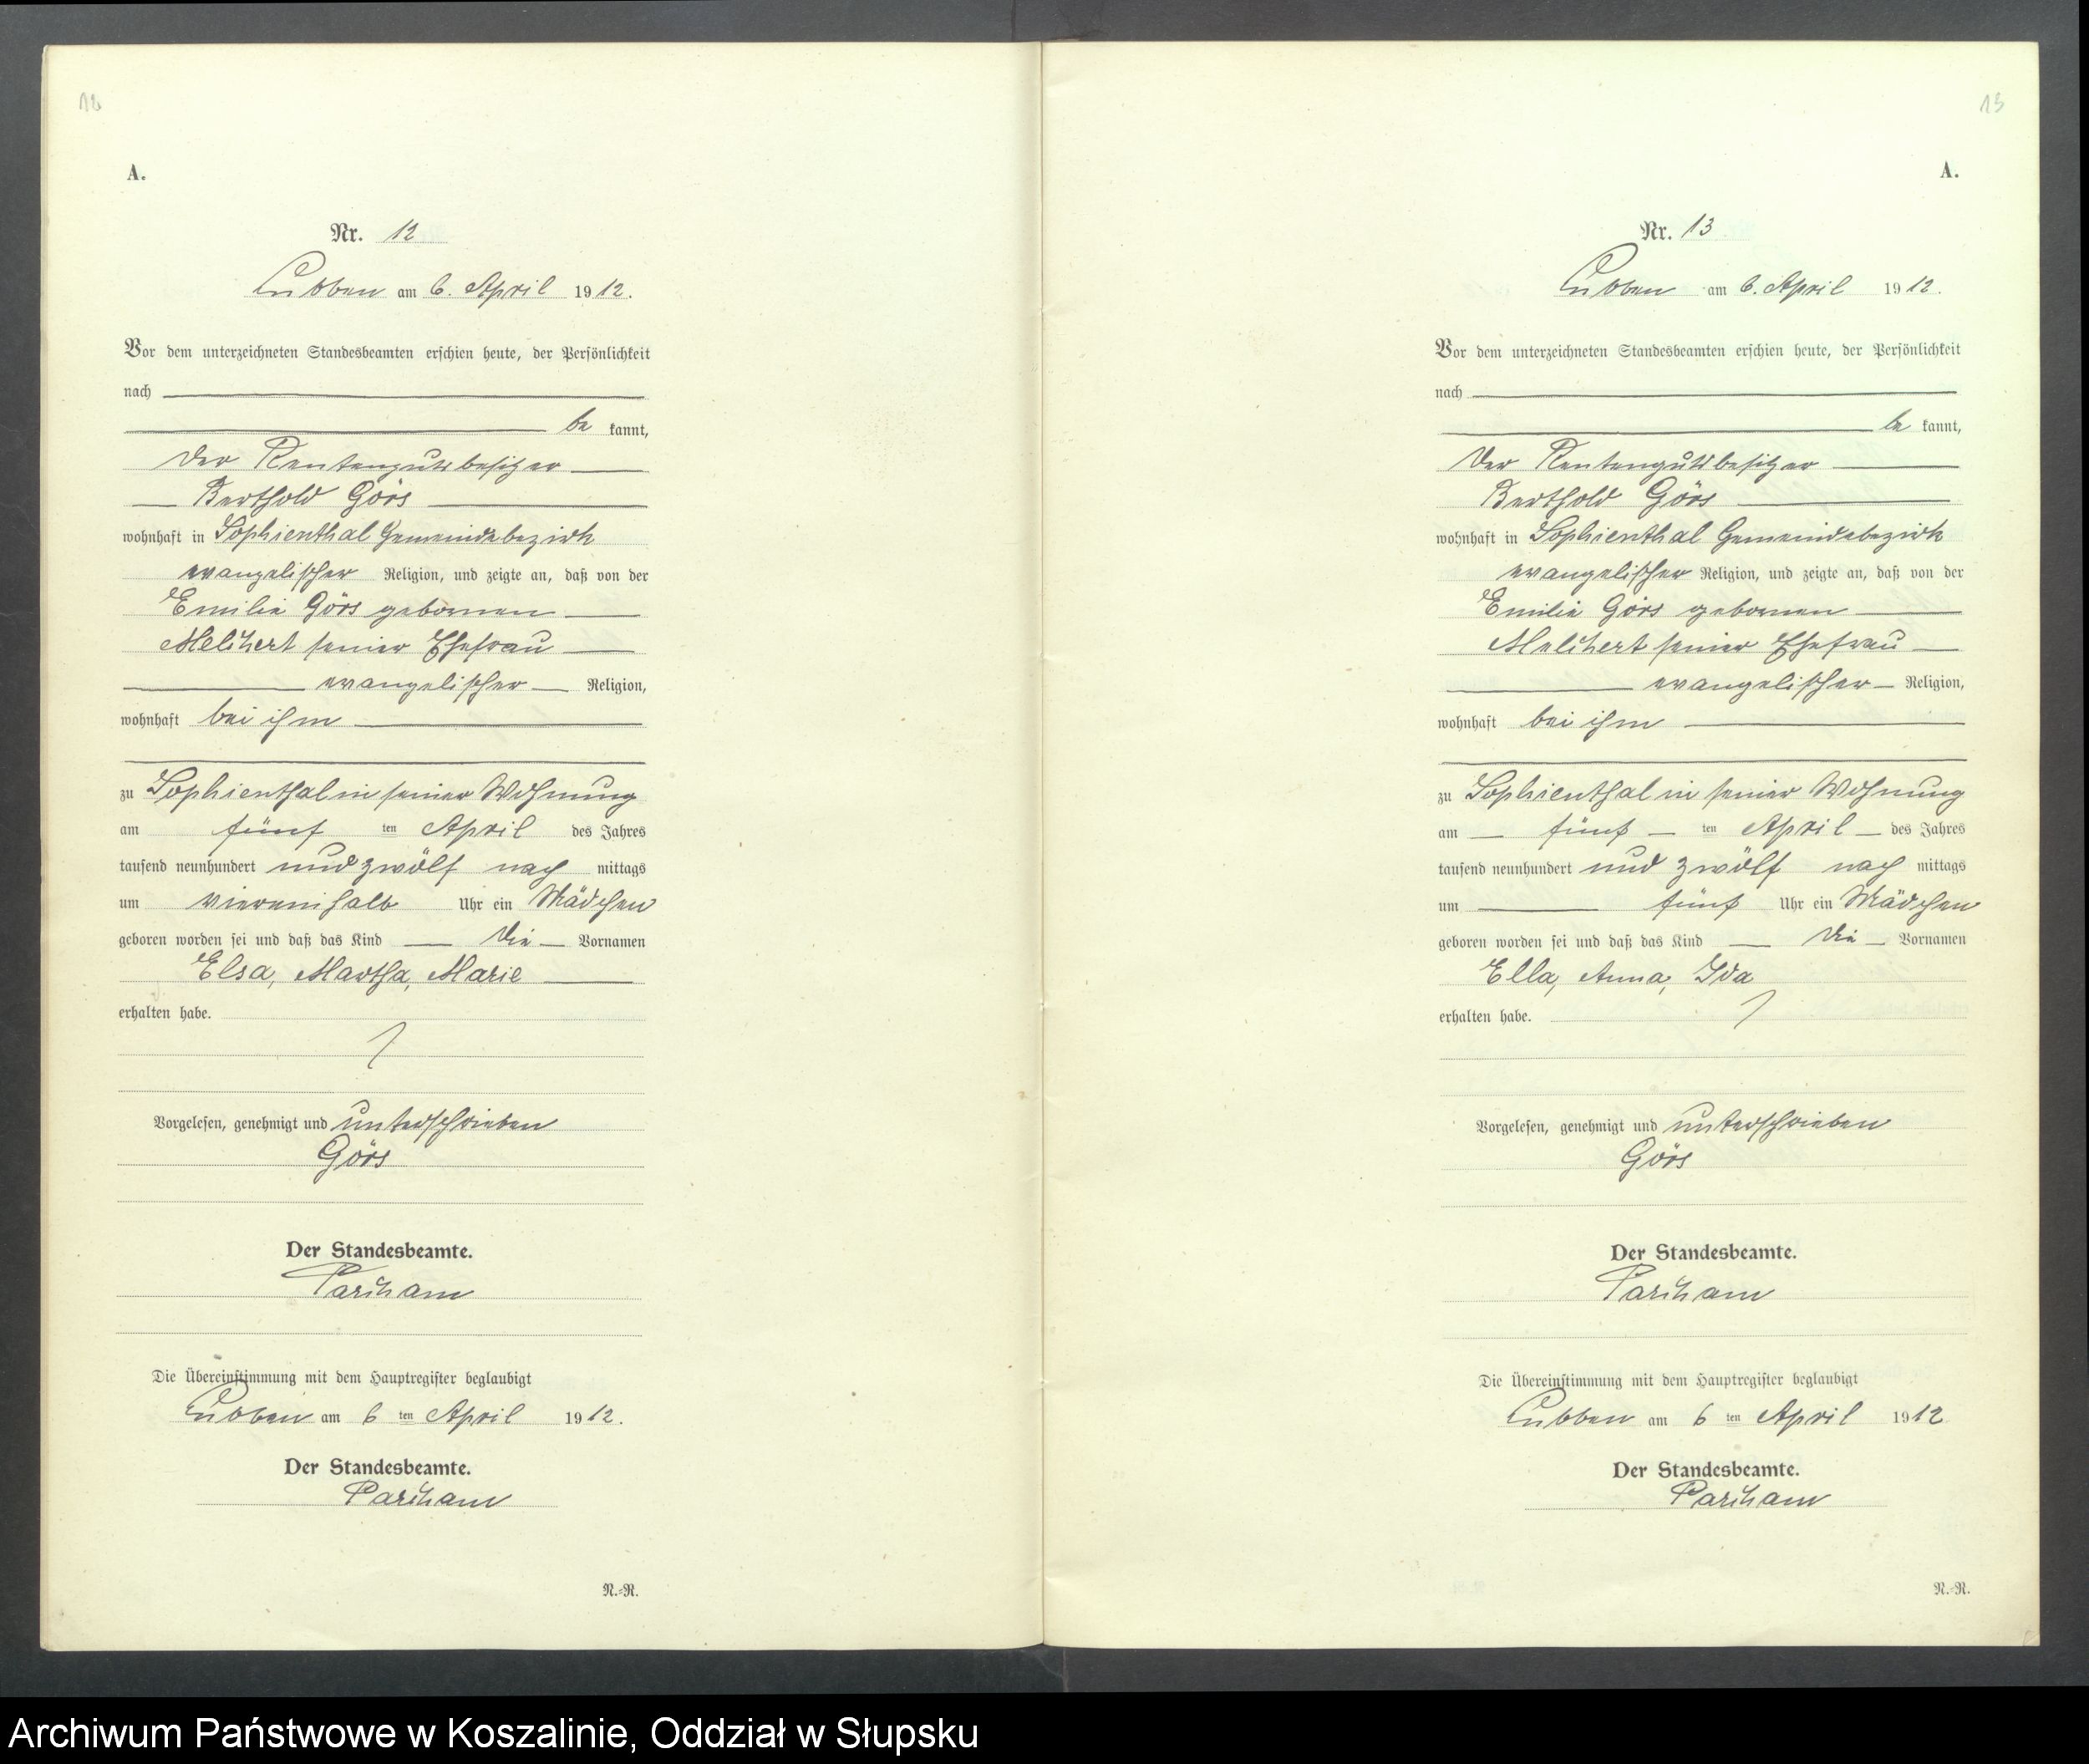 12
A.
Nr. 12
Lubben am 6. April 1912.
Vor dem unterzeichneten Standesbeamten erschien heute, der Persönlichkeit
nach
be kannt,
der Rentengutsbesitzer
Berthold Görs
wohnhaft in Sophienthal Gemeindebezirk
evangelischer Religion, und zeigte an, daß von der
Emilie Görs gebornen
Melchert seiner Ehefrau
evangelischer Religion,
wohnhaft bei ihm
zu Sophienthal in seiner Wohnung
am fünf ten April des Jahres
tausend neunhundert und zwölf nach mittags
um viereinhalb Uhr ein Mädchen
geboren worden sei und daß das Kind die Vornamen
Elsa, Martha, Marie
erhalten habe.
Vorgelesen, genehmigt und unterschrieben
Görs
Der Standesbeamte.
Parcham
Die Übereinstimmung mit dem Hauptregister beglaubigt
Lubben am 6 ten April 1912.
Der Standesbeamte.
Parcham
N.-R.
13
A.
Nr. 13
Lubben am 6. April 1912.
Vor dem unterzeichneten Standesbeamten erschien heute, der Persönlichkeit
nach
be kannt,
der Rentengutsbesitzer
Berthold Görs
wohnhaft in Sophienthal Gemeindebezirk
evangelischer Religion, und zeigte an, daß von der
Emilie Görs gebornen
Melchert seiner Ehefrau
evangelischer Religion,
wohnhaft bei ihm
zu Sophienthal in seiner Wohnung
am fünf ten April des Jahres
tausend neunhundert und zwölf nach mittags
um fünf Uhr ein Mädchen
geboren worden sei und daß das Kind die Vornamen
Ella, Anna, Ida
erhalten habe.
Vorgelesen, genehmigt und unterschrieben
Görs
Der Standesbeamte.
Parcham
Die Übereinstimmung mit dem Hauptregister beglaubigt
Lubben am 6 ten April 1912
Der Standesbeamte.
Parcham
N.-R.
Archiwum Państwowe w Koszalinie, Oddział w Słupsku